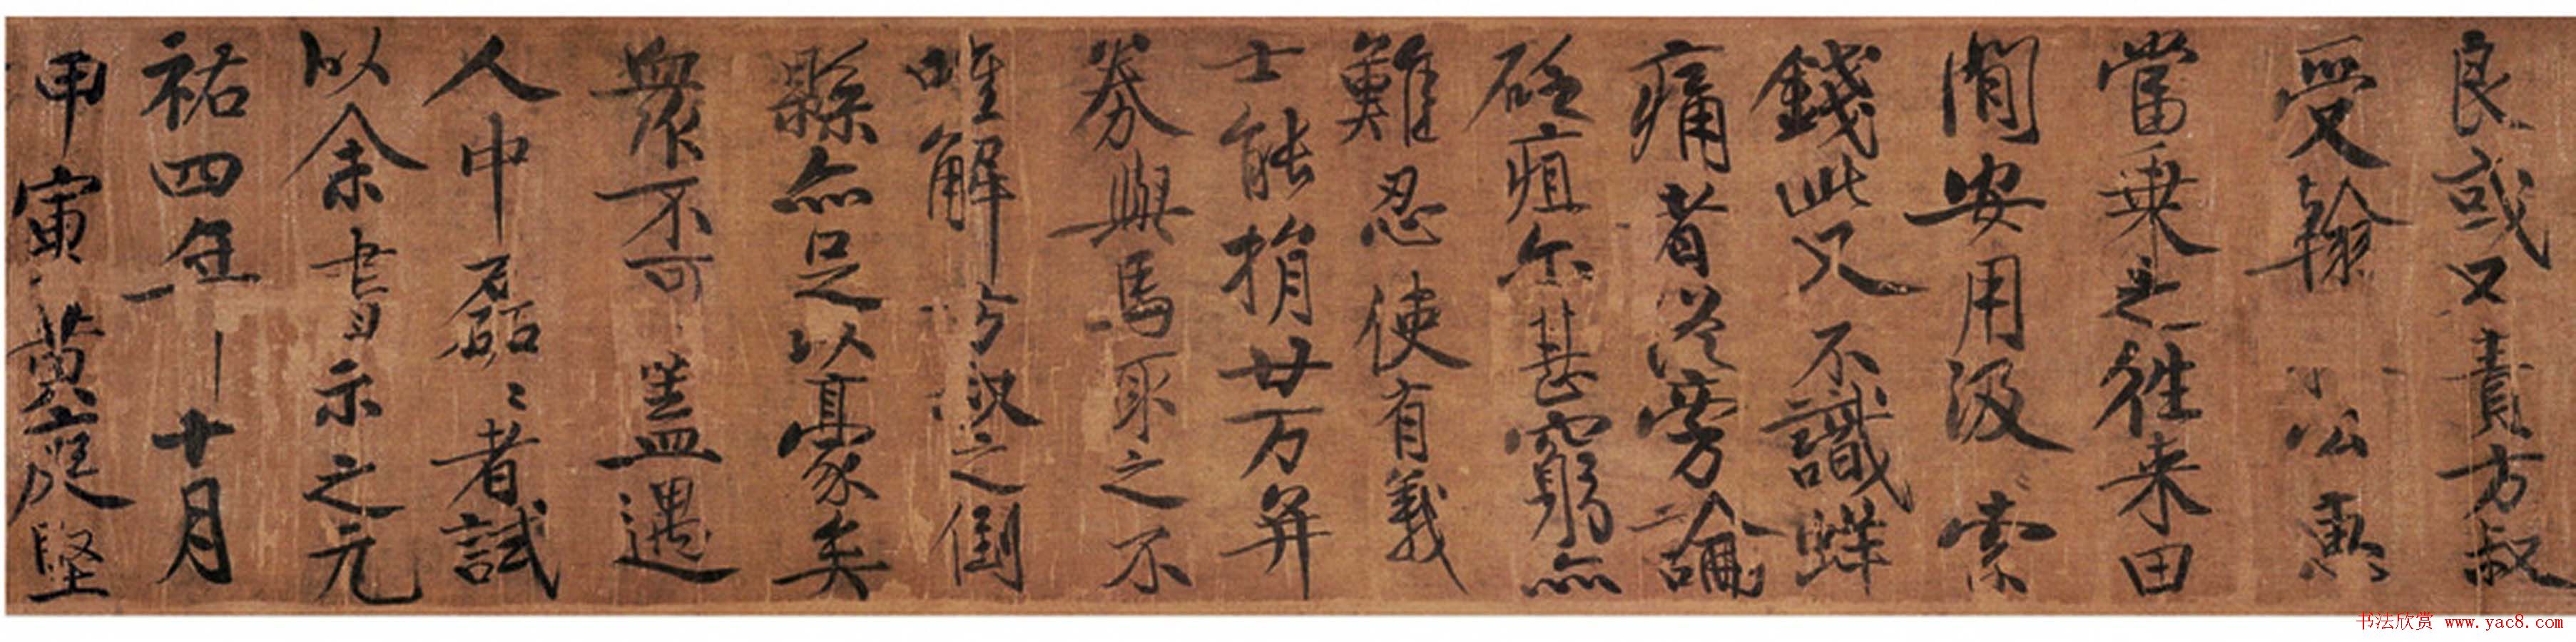 良或又責方叔
受翰公惠
當乗之往来田
閒安用汲索
錢此又不識蛘
痛者從旁論
砭疽尓甚窮亦
難忍使有義
士能捐廿万并
券與馬取之不
唯解方叔之倒
縣亦足以豪矣
衆不可盖遇
人中磊〻者試
以余書示之元
祐四年十月
甲寅黄庭堅
书法欣赏 www.yac8.com